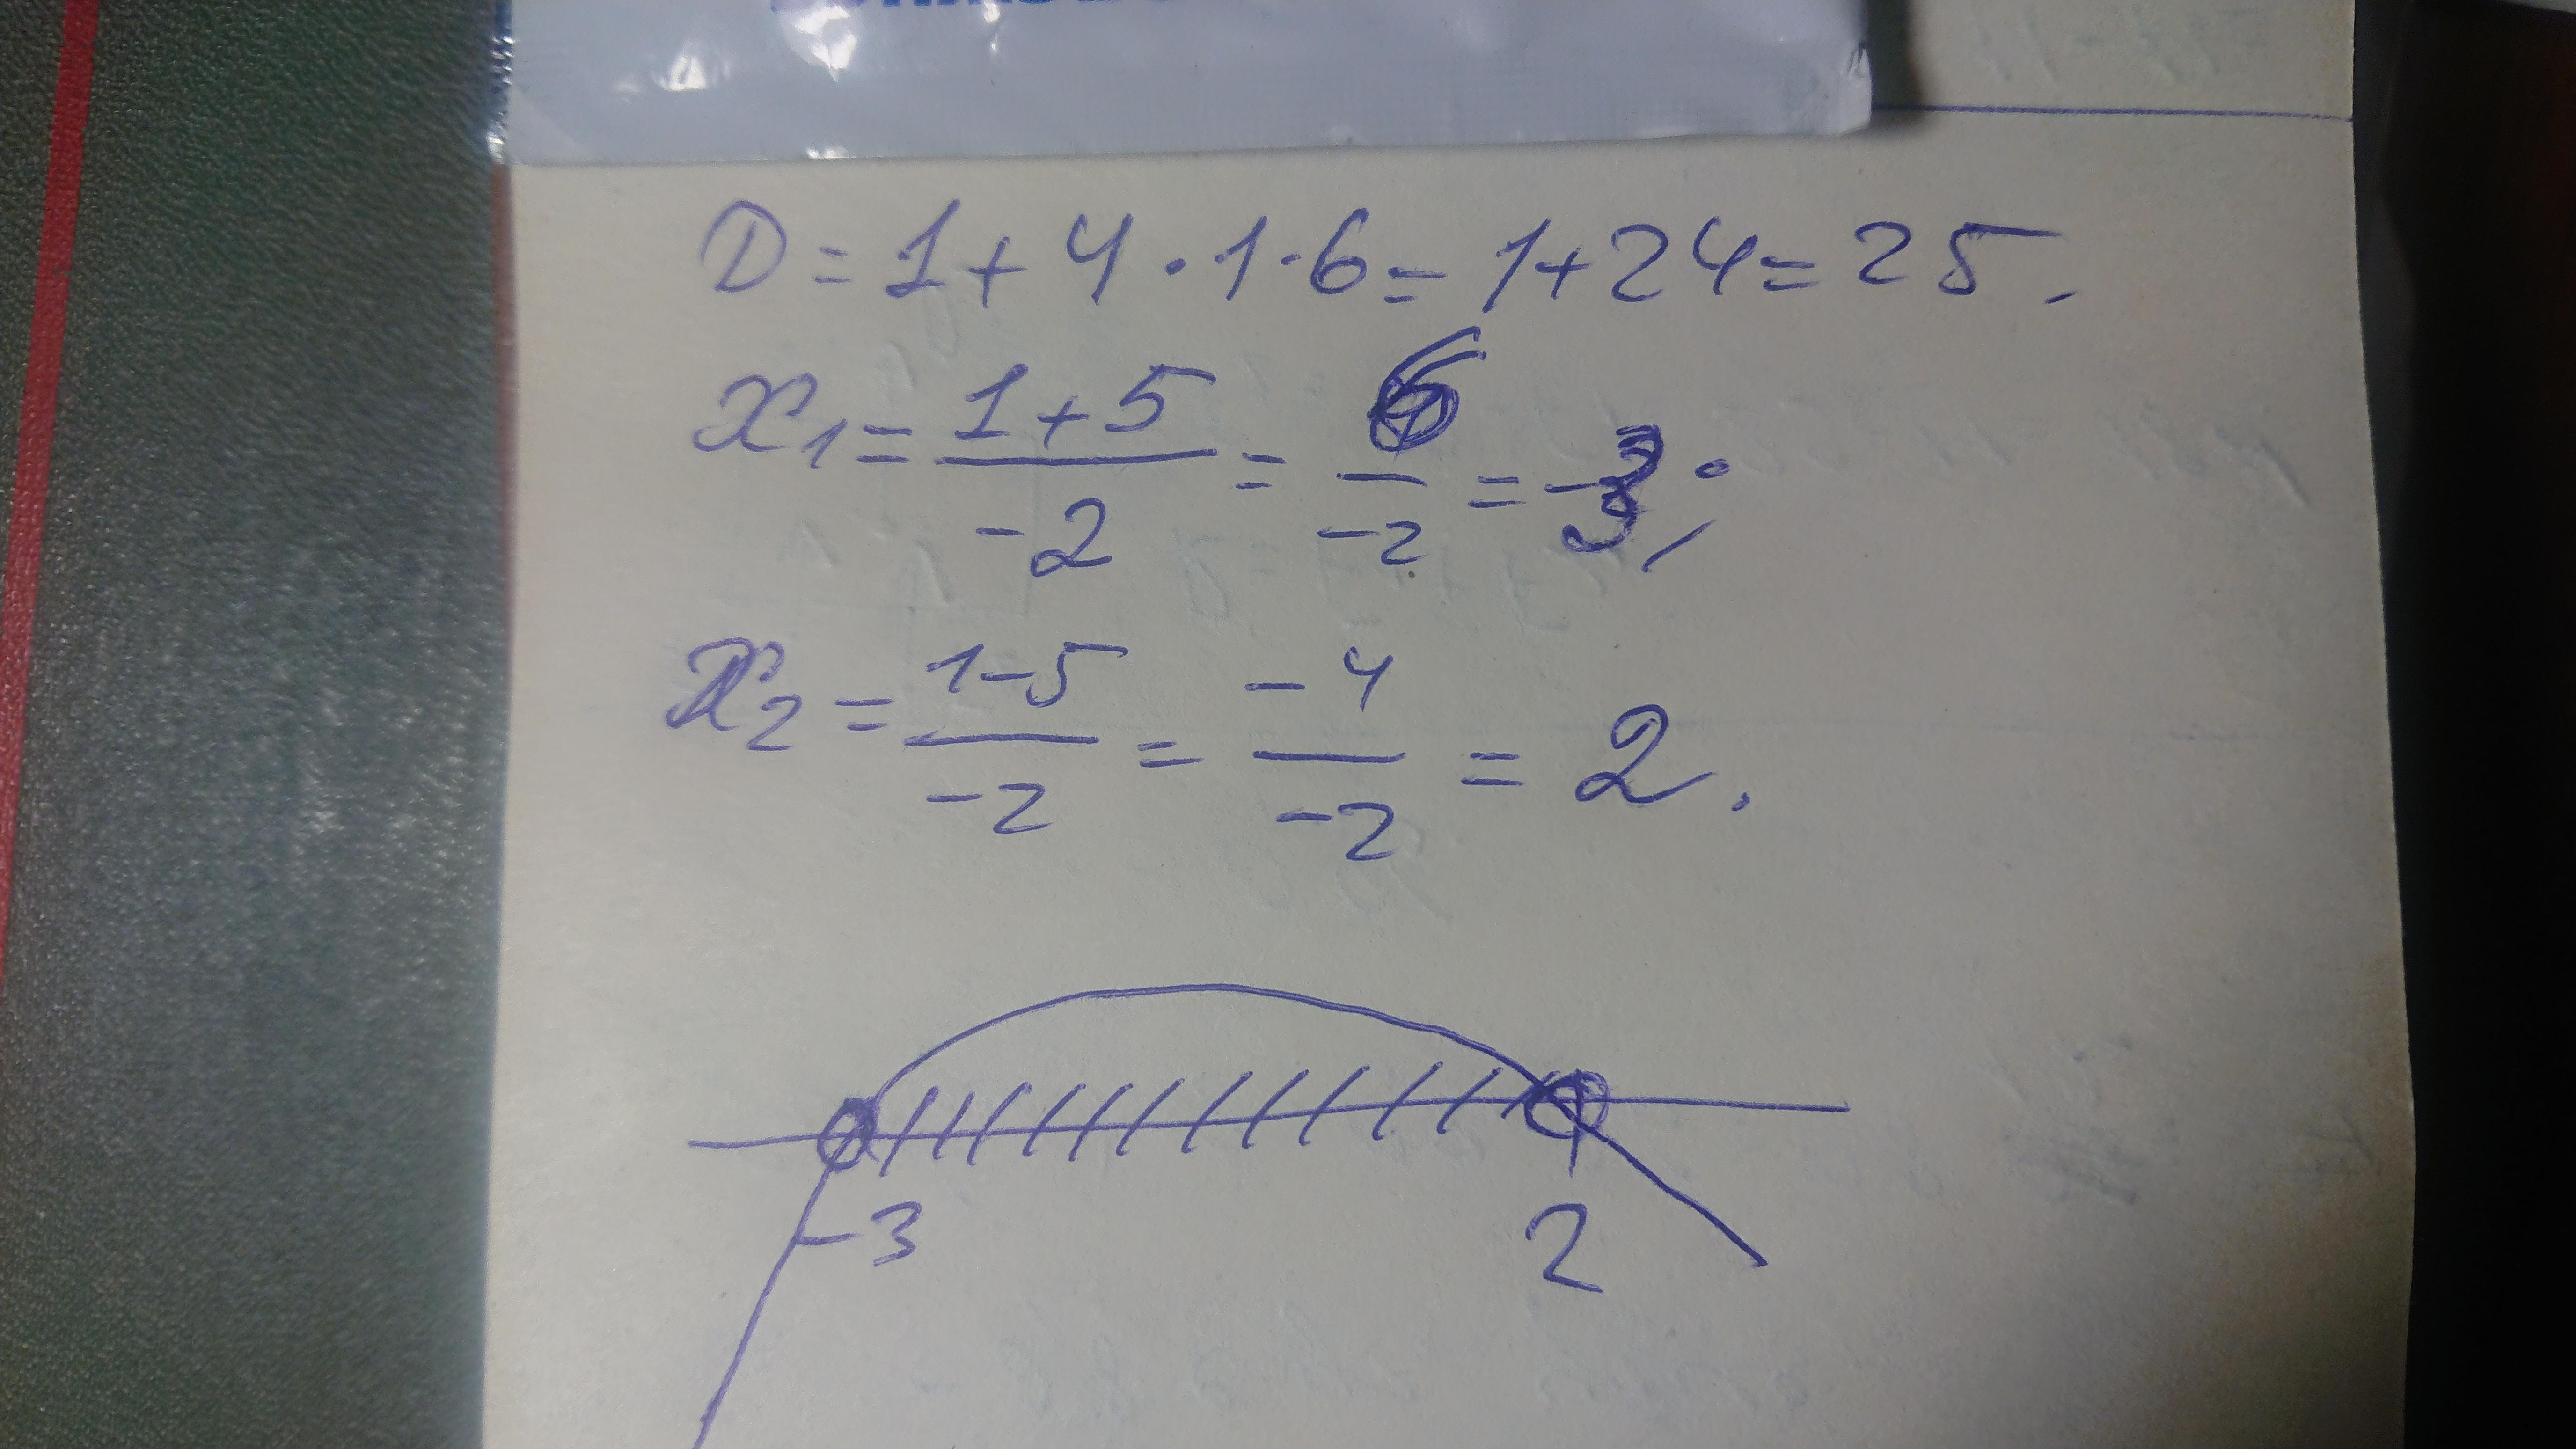 D = 1 + 4 · 1 · 6 = 1 + 24 = 25.
x₁ = (1 + 5)/(-2) = 6/(-2) = -3;
x₂ = (1 - 5)/(-2) = (-4)/(-2) = 2.
-3 2